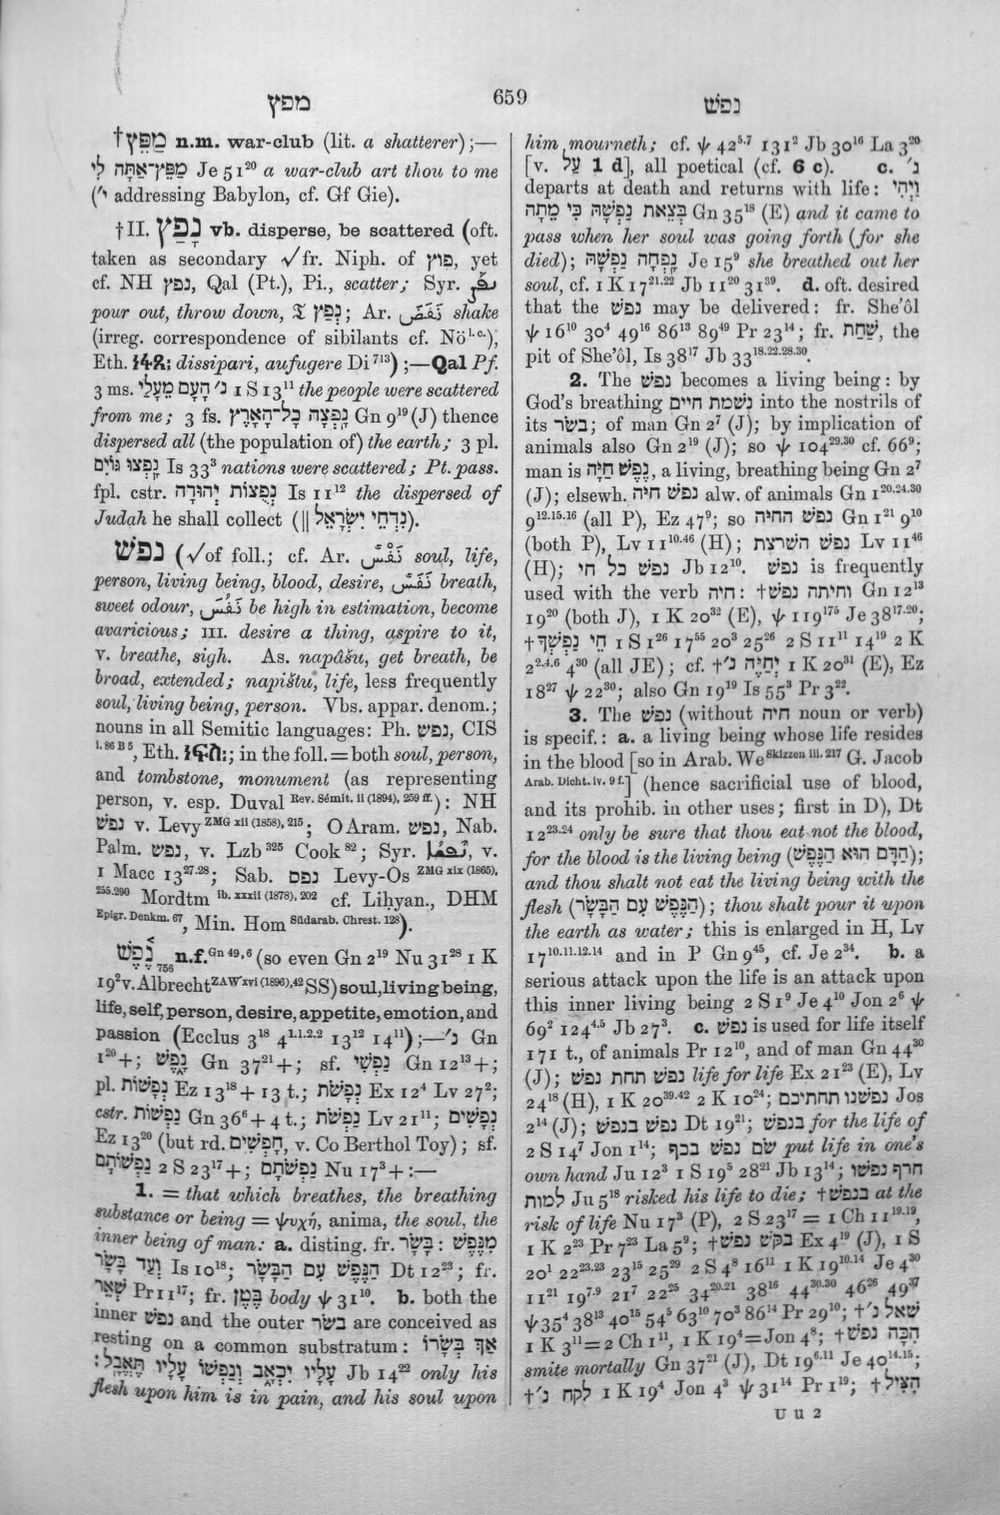 מפץ 659 נפש
†מַפֵּץ n.m. war-club (lit. a shatterer);—
מַפֵּץ־אַתָּה לִי Je 51²⁰ a war-club art thou to me
(י׳ addressing Babylon, cf. Gf Gie).
†II. נָפַץ vb. disperse, be scattered (oft.
taken as secondary √ fr. Niph. of פוץ, yet
cf. NH נפץ, Qal (Pt.), Pi., scatter; Syr.
pour out, throw down, 𝔗 נְפַץ; Ar. نَفَضَ shake
(irreg. correspondence of sibilants cf. Nö l.c.),
Eth. dissipari, aufugere Di⁷¹³);—Qal Pf.
3 ms. נ׳ הָעָם מֵעָלַי 1 S 13¹¹ the people were scattered
from me; 3 fs. נָֽפְצָה כָל־הָאָרֶץ Gn 9¹⁹ (J) thence
dispersed all (the population of) the earth; 3 pl.
נָֽפְצוּ גּוֹיִם Is 33³ nations were scattered; Pt. pass.
fpl. cstr. נְפֻצוֹת יְהוּדָה Is 11¹² the dispersed of
Judah he shall collect (‖ נִדְחֵי יִשְׂרָאֵל).
נפשׁ (√ of foll.; cf. Ar. نَفْسٌ soul, life,
person, living being, blood, desire, نَفَسٌ breath,
sweet odour, نَفُسَ be high in estimation, become
avaricious; III. desire a thing, aspire to it,
V. breathe, sigh. As. napâšu, get breath, be
broad, extended; napištu, life, less frequently
soul, living being, person. Vbs. appar. denom.;
nouns in all Semitic languages: Ph. נפש, CIS
i. 86 B 5, Eth. ነፍስ፡; in the foll. = both soul, person,
and tombstone, monument (as representing
person, v. esp. Duval Rev. Sémit. ii (1894), 259 ff.): NH
נפש v. Levy ZMG xii (1858), 215; OAram. נפש, Nab.
Palm. נפש, v. Lzb³²⁵ Cook⁸²; Syr. v.
1 Macc 13²⁷·²⁸; Sab. נפס Levy-Os ZMG xix (1865),
255.290 Mordtm ib. xxxii (1878), 202 cf. Liḥyan., DHM
Epigr. Denkm. 67, Min. Hom Südarab. Chrest. 128).
נֶ֫פֶשׁ₇₅₆ n.f. Gn 49, 6 (so even Gn 2¹⁹ Nu 31²⁸ 1 K
19² v. Albrecht ZAW xvi (1896), 42 SS) soul, living being,
life, self, person, desire, appetite, emotion, and
passion (Ecclus 3¹⁸ 4¹·¹·²·² 13¹² 14¹¹);—נ׳ Gn
1²⁰ +; נָפֶשׁ Gn 37²¹ +; sf. נַפְשִׁי Gn 12¹³ +;
pl. נְפָשׁוֹת Ez 13¹⁸ + 13 t.; נְפָשֹׁת Ex 12⁴ Lv 27²;
cstr. נַפְשׁוֹת Gn 36⁶ + 4 t.; נַפְשֹׁת Lv 21¹¹; נְפָשִׁים
Ez 13²⁰ (but rd. חָפְשִׁים, v. Co Berthol Toy); sf.
נַפְשׁוֹתָם 2 S 23¹⁷ +; נַפְשֹׁתָם Nu 17³ +:—
1. = that which breathes, the breathing
substance or being = ψυχή, anima, the soul, the
inner being of man: a. disting. fr. בָּשָׂר: מִנֶּפֶשׁ
וְעַד בָּשָׂר Is 10¹⁸; הַנֶּפֶשׁ עִם הַבָּשָׂר Dt 12²³; fr.
שְׁאֵר Pr 11¹⁷; fr. בֶּטֶן body ψ 31¹⁰. b. both the
inner נפש and the outer בשר are conceived as
resting on a common substratum: אַךְ בְּשָׂרוֹ
עָלָיו יִכְאָב וְנַפְשׁוֹ עָלָיו תֶּאֱבָל: Jb 14²² only his
flesh upon him is in pain, and his soul upon
him mourneth; cf. ψ 42⁵·⁷ 131² Jb 30¹⁶ La 3²⁰
[v. עַל 1 d], all poetical (cf. 6 c). c. נ׳
departs at death and returns with life: וַיְהִי
בְּצֵאת נַפְשָׁהּ כִּי מֵתָה Gn 35¹⁸ (E) and it came to
pass when her soul was going forth (for she
died); נָֽפְחָה נַפְשָׁהּ Je 15⁹ she breathed out her
soul, cf. 1 K 17²¹·²² Jb 11²⁰ 31³⁹. d. oft. desired
that the נפש may be delivered: fr. She'ôl
ψ 16¹⁰ 30⁴ 49¹⁶ 86¹³ 89⁴⁹ Pr 23¹⁴; fr. שַׁחַת, the
pit of She'ôl, Is 38¹⁷ Jb 33¹⁸·²²·²⁸·³⁰.
2. The נפש becomes a living being: by
God's breathing נשמת חיים into the nostrils of
its בשר; of man Gn 2⁷ (J); by implication of
animals also Gn 2¹⁹ (J); so ψ 104²⁹·³⁰ cf. 66⁹;
man is נֶפֶשׁ חַיָּה, a living, breathing being Gn 2⁷
(J); elsewh. נפש חיה alw. of animals Gn 1²⁰·²⁴·³⁰
9¹²·¹⁵·¹⁶ (all P), Ez 47⁹; so נפש החיה Gn 1²¹ 9¹⁰
(both P), Lv 11¹⁰·⁴⁶ (H); נפש השרצת Lv 11⁴⁶
(H); נפש כל חי Jb 12¹⁰. נפש is frequently
used with the verb חיה: †וחיתה נפש Gn 12¹³
19²⁰ (both J), 1 K 20³² (E), ψ 119¹⁷⁵ Je 38¹⁷·²⁰;
†חֵי נַפְשְׁךָ 1 S 1²⁶ 17⁵⁵ 20³ 25²⁶ 2 S 11¹¹ 14¹⁹ 2 K
2²·⁴·⁶ 4³⁰ (all JE); cf. †יְחַיֶּה נ׳ 1 K 20³¹ (E), Ez
18²⁷ ψ 22³⁰; also Gn 19¹⁹ Is 55³ Pr 3²².
3. The נפש (without חיה noun or verb)
is specif.: a. a living being whose life resides
in the blood [so in Arab. We Skizzen iii. 217 G. Jacob
Arab. Dicht. iv. 9 f.] (hence sacrificial use of blood,
and its prohib. in other uses; first in D), Dt
12²³·²⁴ only be sure that thou eat not the blood,
for the blood is the living being (הַדָּם הוּא הַנֶּפֶשׁ);
and thou shalt not eat the living being with the
flesh (הַנֶּפֶשׁ עִם הַבָּשָׂר); thou shalt pour it upon
the earth as water; this is enlarged in H, Lv
17¹⁰·¹¹·¹²·¹⁴ and in P Gn 9⁴·⁵, cf. Je 2³⁴. b. a
serious attack upon the life is an attack upon
this inner living being 2 S 1⁹ Je 4¹⁰ Jon 2⁶ ψ
69² 124⁴·⁵ Jb 27³. c. נפש is used for life itself
171 t., of animals Pr 12¹⁰, and of man Gn 44³⁰
(J); נפש תחת נפש life for life Ex 21²³ (E), Lv
24¹⁸ (H), 1 K 20³⁹·⁴² 2 K 10²⁴; נפשנו תחתיכם Jos
2¹⁴ (J); נפש בנפש Dt 19²¹; בנפש for the life of
2 S 14⁷ Jon 1¹⁴; שׂם נפש בכף put life in one's
own hand Ju 12³ 1 S 19⁵ 28²¹ Jb 13¹⁴; חרף נפשו
למות Ju 5¹⁸ risked his life to die; †בנפש at the
risk of life Nu 17³ (P), 2 S 23¹⁷ = 1 Ch 11¹⁹·¹⁹,
1 K 2²³ Pr 7²³ La 5⁹; †בקש נפש Ex 4¹⁹ (J), 1 S
20¹ 22²³·²³ 23¹⁵ 25²⁹ 2 S 4⁸ 16¹¹ 1 K 19¹⁰·¹⁴ Je 4³⁰
11²¹ 19⁷·⁹ 21⁷ 22²⁵ 34²⁰·²¹ 38¹⁶ 44³⁰·³⁰ 46²⁶ 49³⁷
ψ 35⁴ 38¹³ 40¹⁵ 54⁵ 63¹⁰ 70³ 86¹⁴ Pr 29¹⁰; †שאל נ׳
1 K 3¹¹ = 2 Ch 1¹¹, 1 K 19⁴ = Jon 4⁸; †הִכָּה נפש
smite mortally Gn 37²¹ (J), Dt 19⁶·¹¹ Je 40¹⁴·¹⁵;
†לקח נ׳ 1 K 19⁴ Jon 4³ ψ 31¹⁴ Pr 1¹⁹; †הִצִּיל
U u 2